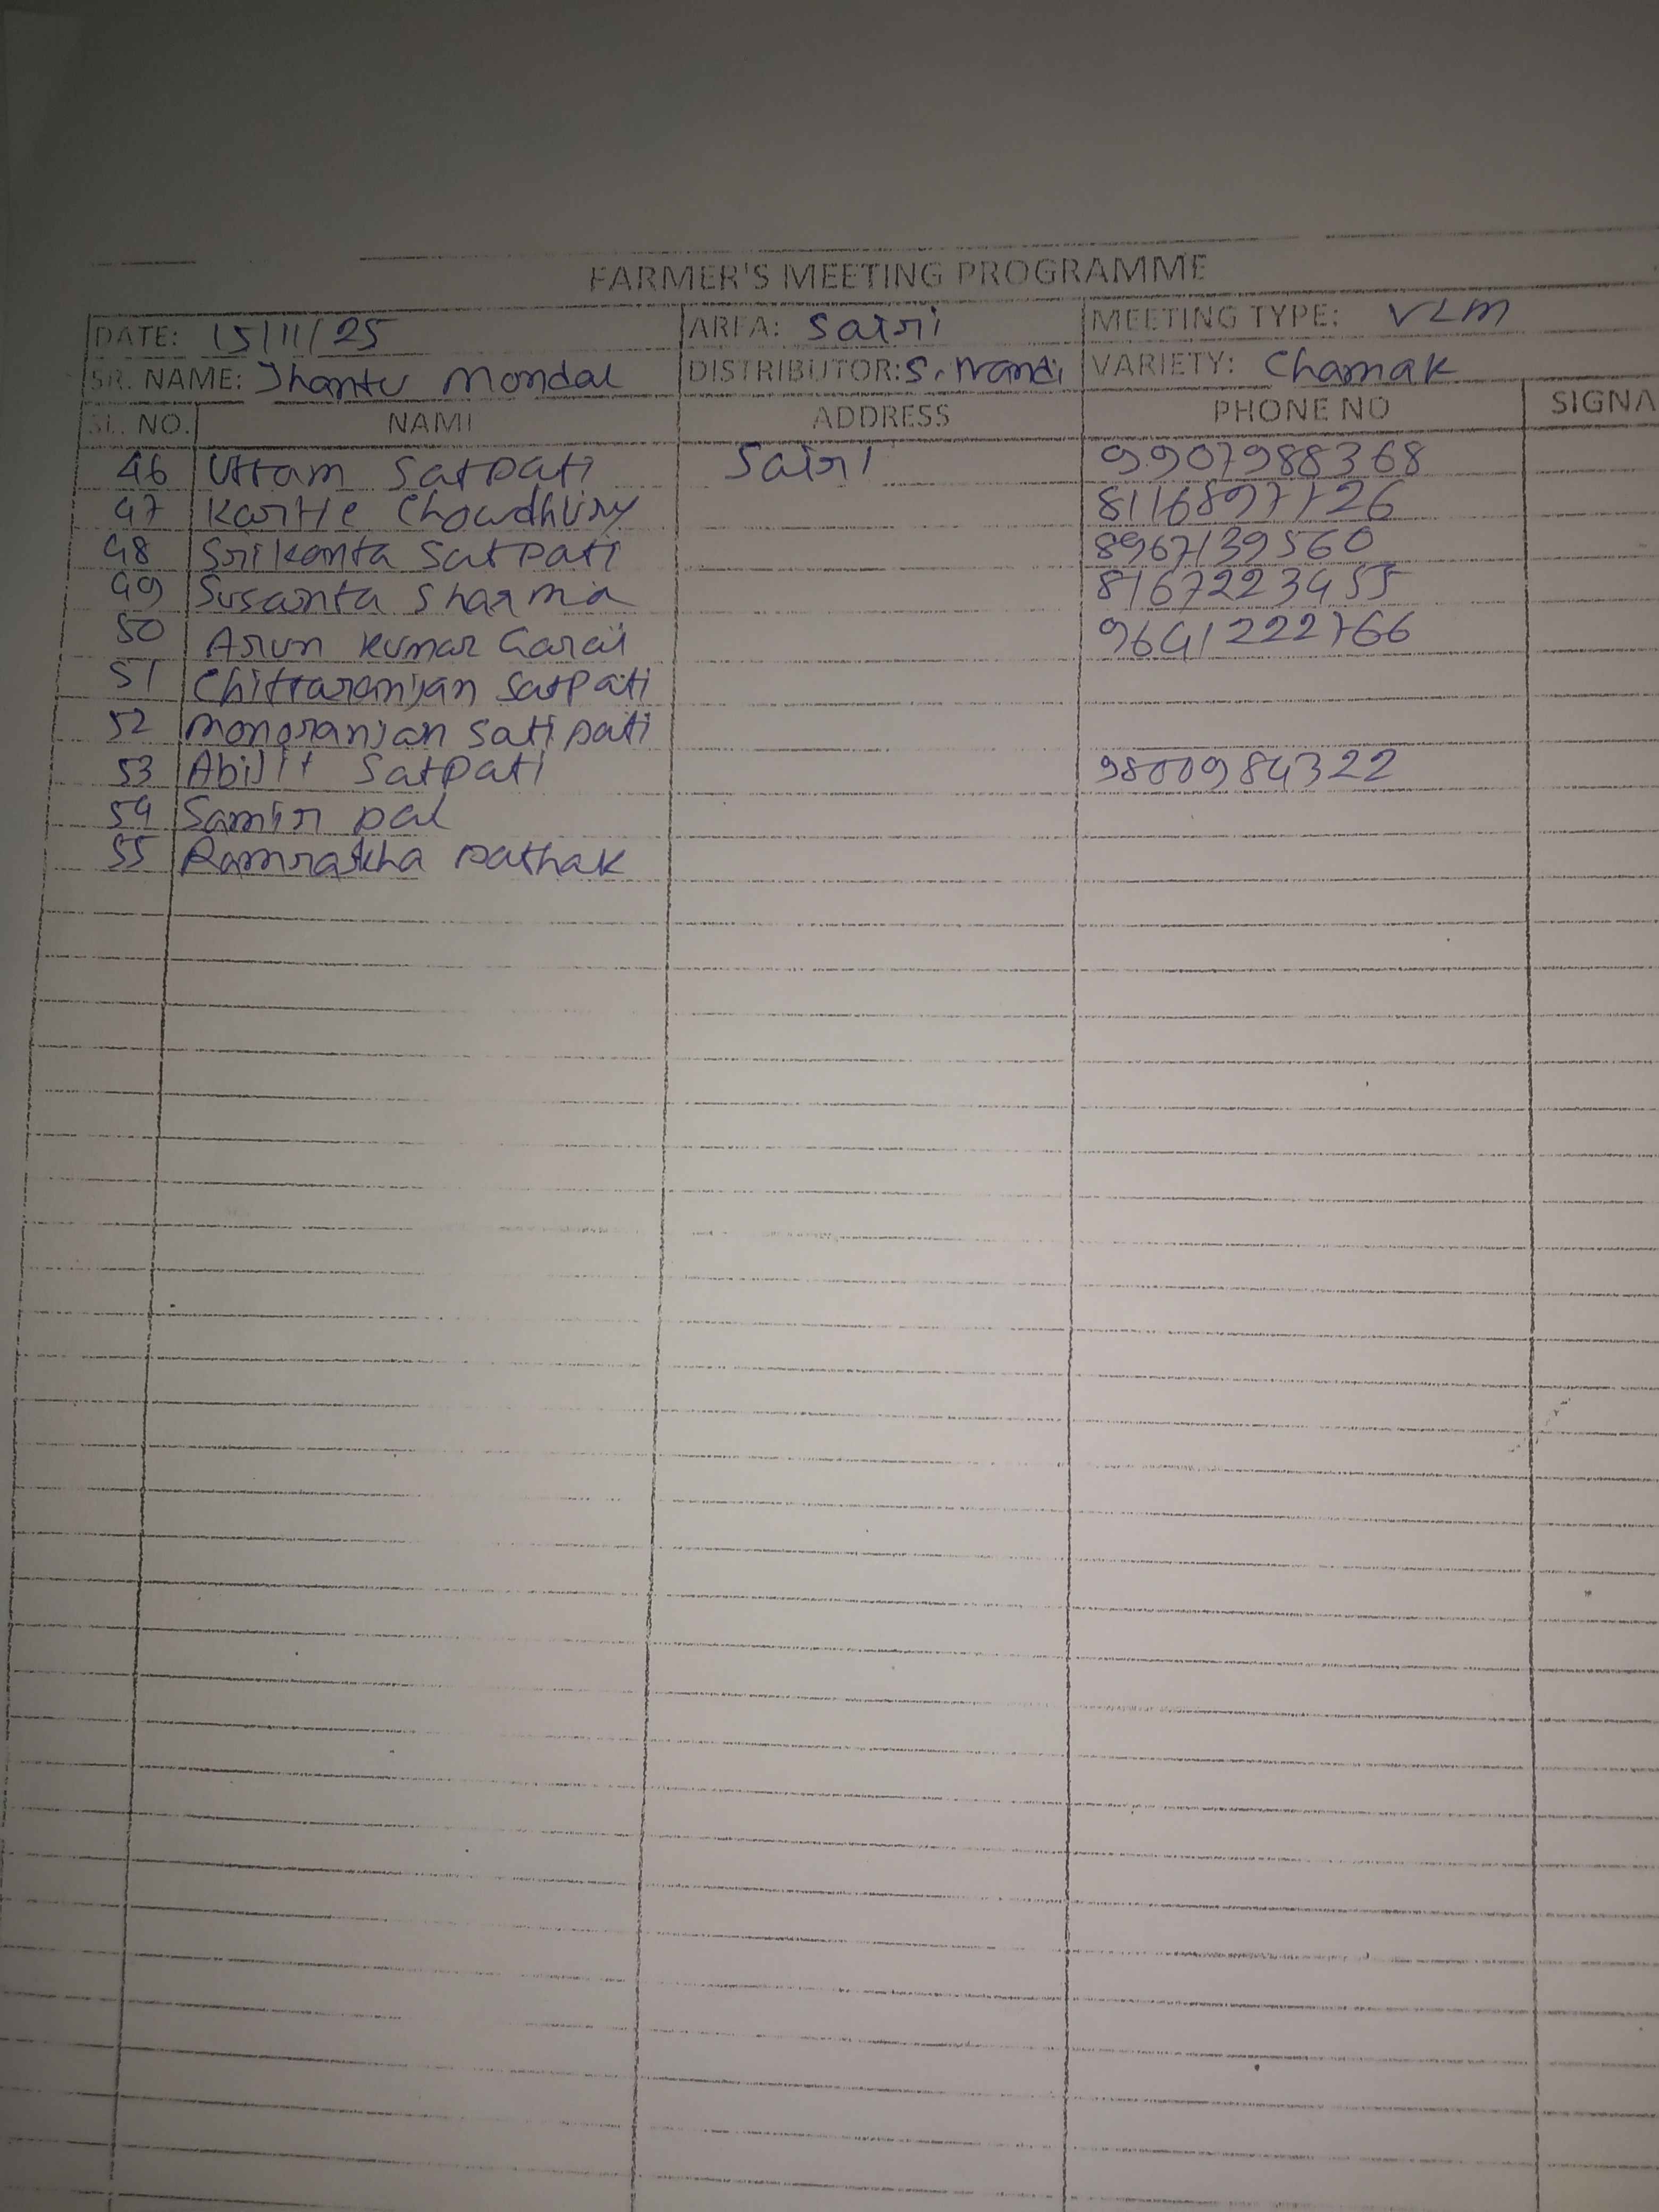 FARMER'S MEETING PROGRAMME
DATE: 15/11/25 AREA: Sairi MEETING TYPE: VLM
SR. NAME: Jhantu Mondal DISTRIBUTOR: S. Nandi VARIETY: Chamak
SL. NO. NAME ADDRESS PHONE NO SIGNA
46 Uttam Satpati Sairi 9907988368
47 Kartle Chowdhury 8116897726
48 Srikanta Satpati 8967139560
49 Susanta Sharma 8167223455
50 Arun Kumar Garai 9641222766
51 Chittaranjan Satpati
52 Monoranjan Satipati
53 Abijit Satpati 9800984322
54 Samir pal
55 Ramrakha pathak